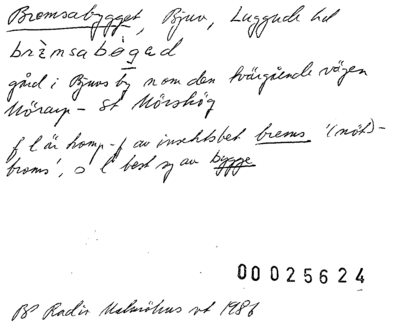 Bremsabygget, Bjuv, Luggude hd
brèmsabö́gad
gård i Bjuvs by n om den tvärgående vägen
Mörarp - St Mörshög
f l är komp-f av insektsbet brems '(nöt)-
broms', s l best sg av bygge
00025624
BP Radio Malmöhus vt 1986